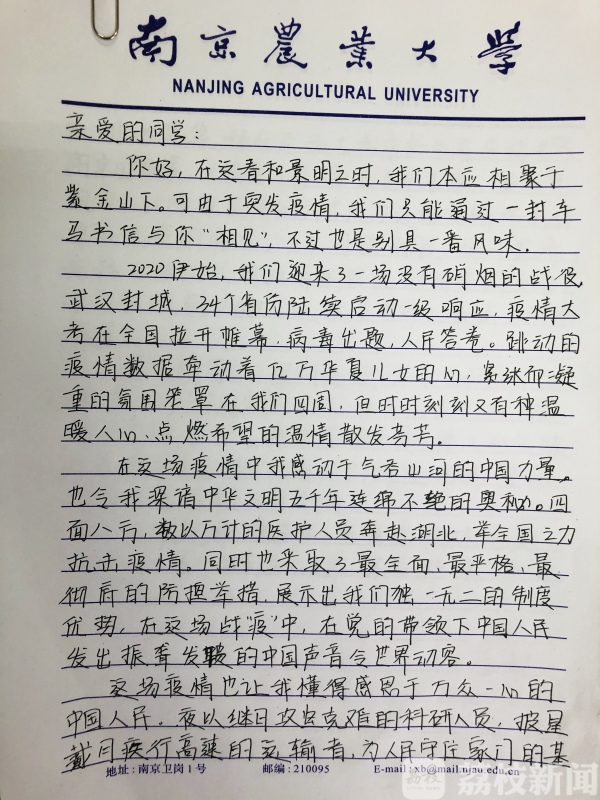 南京農業大學
NANJING AGRICULTURAL UNIVERSITY
亲爱的同学：
你好，在这春和景明之时，我们本应相聚于
紫金山下。可由于突发疫情，我们只能通过一封车
马书信与你“相见”，不过也是别具一番风味。
2020伊始，我们迎来了一场没有硝烟的战役，
武汉封城，34个省份陆续启动一级响应，疫情大
考在全国拉开帷幕，病毒出题，人民答卷。跳动的
疫情数据牵动着亿万华夏儿女的心，紧绷而凝
重的氛围笼罩在我们四周，但时时刻刻又有种温
暖人心、点燃希望的温情散发芬芳。
在这场疫情中我感动于气吞山河的中国力量。
也令我深谙中华文明五千年连绵不绝的奥秘。四
面八方，数以万计的医护人员奔赴湖北，举全国之力
抗击疫情。同时也采取了最全面、最严格、最
彻底的防控举措，展示出我们独一无二的制度
优势，在这场战“疫”中，在党的带领下中国人民
发出振聋发聩的中国声音令世界动容。
这场疫情也让我懂得感恩于万众一心的
中国人民，夜以继日攻坚克难的科研人员，披星
戴月疾行高速的运输者，为人民守住家门的基
地址：南京卫岗1号 邮编：210095 E-mail:xb@mail.njau.edu.cn
荔枝新闻